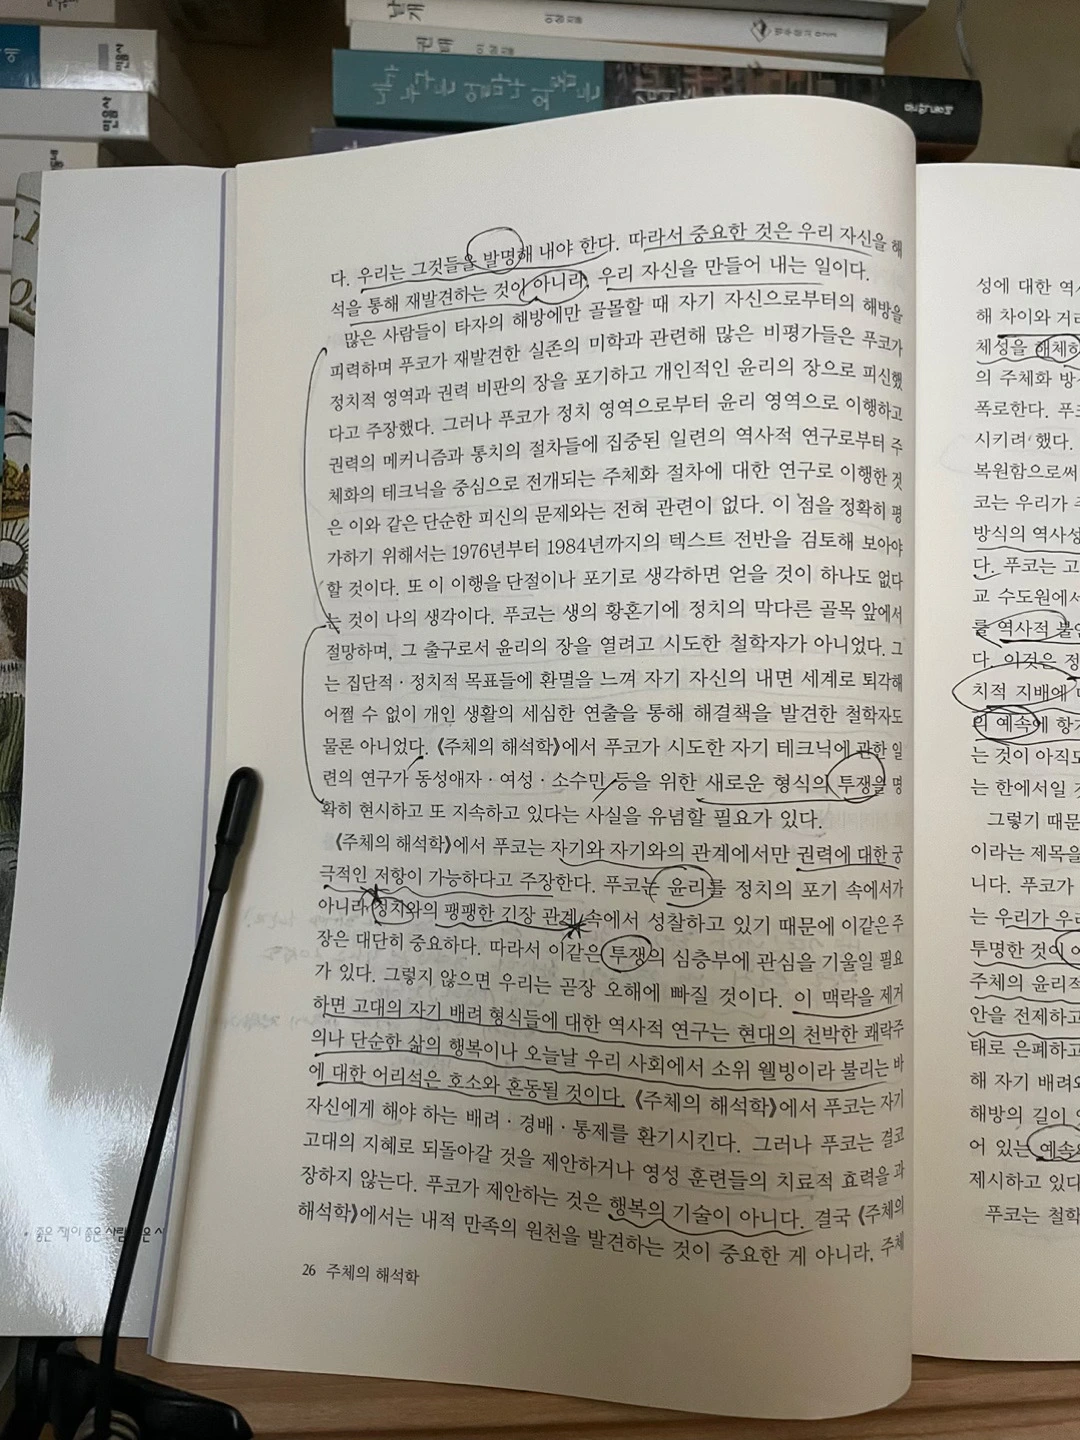 날개
이상 지음
권태
이상 지음
민음사
민음사
문학동네
다. 우리는 그것들을 발명해 내야 한다. 따라서 중요한 것은 우리 자신을 해
석을 통해 재발견하는 것이 아니라, 우리 자신을 만들어 내는 일이다.
많은 사람들이 타자의 해방에만 골몰할 때 자기 자신으로부터의 해방을
피력하며 푸코가 재발견한 실존의 미학과 관련해 많은 비평가들은 푸코가
정치적 영역과 권력 비판의 장을 포기하고 개인적인 윤리의 장으로 피신했
다고 주장했다. 그러나 푸코가 정치 영역으로부터 윤리 영역으로 이행하고
권력의 메커니즘과 통치의 절차들에 집중된 일련의 역사적 연구로부터 주
체화의 테크닉을 중심으로 전개되는 주체화 절차에 대한 연구로 이행한 것
은 이와 같은 단순한 피신의 문제와는 전혀 관련이 없다. 이 점을 정확히 평
가하기 위해서는 1976년부터 1984년까지의 텍스트 전반을 검토해 보아야
할 것이다. 또 이 이행을 단절이나 포기로 생각하면 얻을 것이 하나도 없다
는 것이 나의 생각이다. 푸코는 생의 황혼기에 정치의 막다른 골목 앞에서
절망하며, 그 출구로서 윤리의 장을 열려고 시도한 철학자가 아니었다. 그
는 집단적·정치적 목표들에 환멸을 느껴 자기 자신의 내면 세계로 퇴각해
어쩔 수 없이 개인 생활의 세심한 연출을 통해 해결책을 발견한 철학자도
물론 아니었다. 《주체의 해석학》에서 푸코가 시도한 자기 테크닉에 관한 일
련의 연구가 동성애자·여성·소수민 등을 위한 새로운 형식의 투쟁을 명
확히 현시하고 또 지속하고 있다는 사실을 유념할 필요가 있다.
《주체의 해석학》에서 푸코는 자기와 자기와의 관계에서만 권력에 대한 궁
극적인 저항이 가능하다고 주장한다. 푸코는 윤리를 정치의 포기 속에서가
아니라 정치와의 팽팽한 긴장 관계 속에서 성찰하고 있기 때문에 이같은 주
장은 대단히 중요하다. 따라서 이같은 투쟁의 심층부에 관심을 기울일 필요
가 있다. 그렇지 않으면 우리는 곧장 오해에 빠질 것이다. 이 맥락을 제거
하면 고대의 자기 배려 형식들에 대한 역사적 연구는 현대의 천박한 쾌락주
의나 단순한 삶의 행복이나 오늘날 우리 사회에서 소위 웰빙이라 불리는 바
에 대한 어리석은 호소와 혼동될 것이다. 《주체의 해석학》에서 푸코는 자기
자신에게 해야 하는 배려·경배·통제를 환기시킨다. 그러나 푸코는 결코
고대의 지혜로 되돌아갈 것을 제안하거나 영성 훈련들의 치료적 효력을 과
장하지 않는다. 푸코가 제안하는 것은 행복의 기술이 아니다. 결국 《주체의
해석학》에서는 내적 만족의 원천을 발견하는 것이 중요한 게 아니라, 주체
26 주체의 해석학
성에 대한 역사
해 차이와 거리
체성을 해체하
의 주체화 방식
폭로한다. 푸코
시키려 했다.
복원함으로써
코는 우리가 주
방식의 역사성
다. 푸코는 고
교 수도원에서
를 역사적 불연
다. 이것은 정
치적 지배에 대
의 예속에 항거
는 것이 아직도
는 한에서일 것
그렇기 때문
이라는 제목을
니다. 푸코가
는 우리가 우리
투명한 것이 아
주체의 윤리적
안을 전제하고
태로 은폐하고
해 자기 배려와
해방의 길이 있
어 있는 예속의
제시하고 있다
푸코는 철학